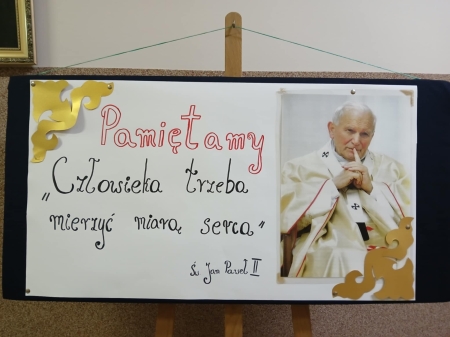 Pamiętamy
„Człowieka trzeba
mierzyć miarą serca"
Św Jan Paweł II